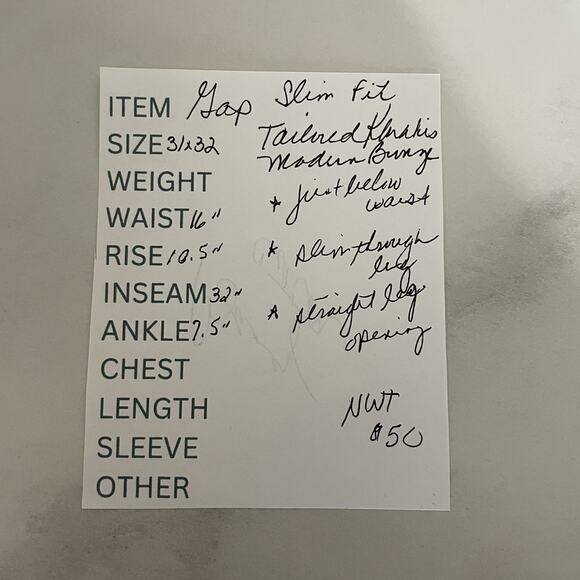 ITEM Gap Slim Fit
SIZE 31x32 Tailored Khakis
Modern Bronze
WEIGHT * just below
waist
WAIST 16"
RISE 10.5" * slim through
leg
INSEAM 32"
* straight leg
ANKLE 7.5" opening
CHEST
LENGTH NWT
$50
SLEEVE
OTHER